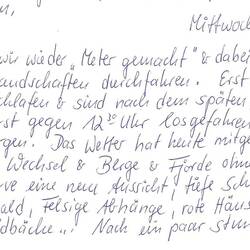 Mittwoc
wir wieder „Meter gemacht" & dabei
andschaften durchfahren. Erst
chlafen & sind nach dem späten
rst gegen 12³⁰ Uhr losgefahren
rgen. Das Wetter hat heute mitge
Wechsel & Berge & Fjorde ohn
rve eine neue Aussicht, tiefe Sch
ald, Felsige Abhänge, rote Häus
ldbäche...! Nach ein paar stun